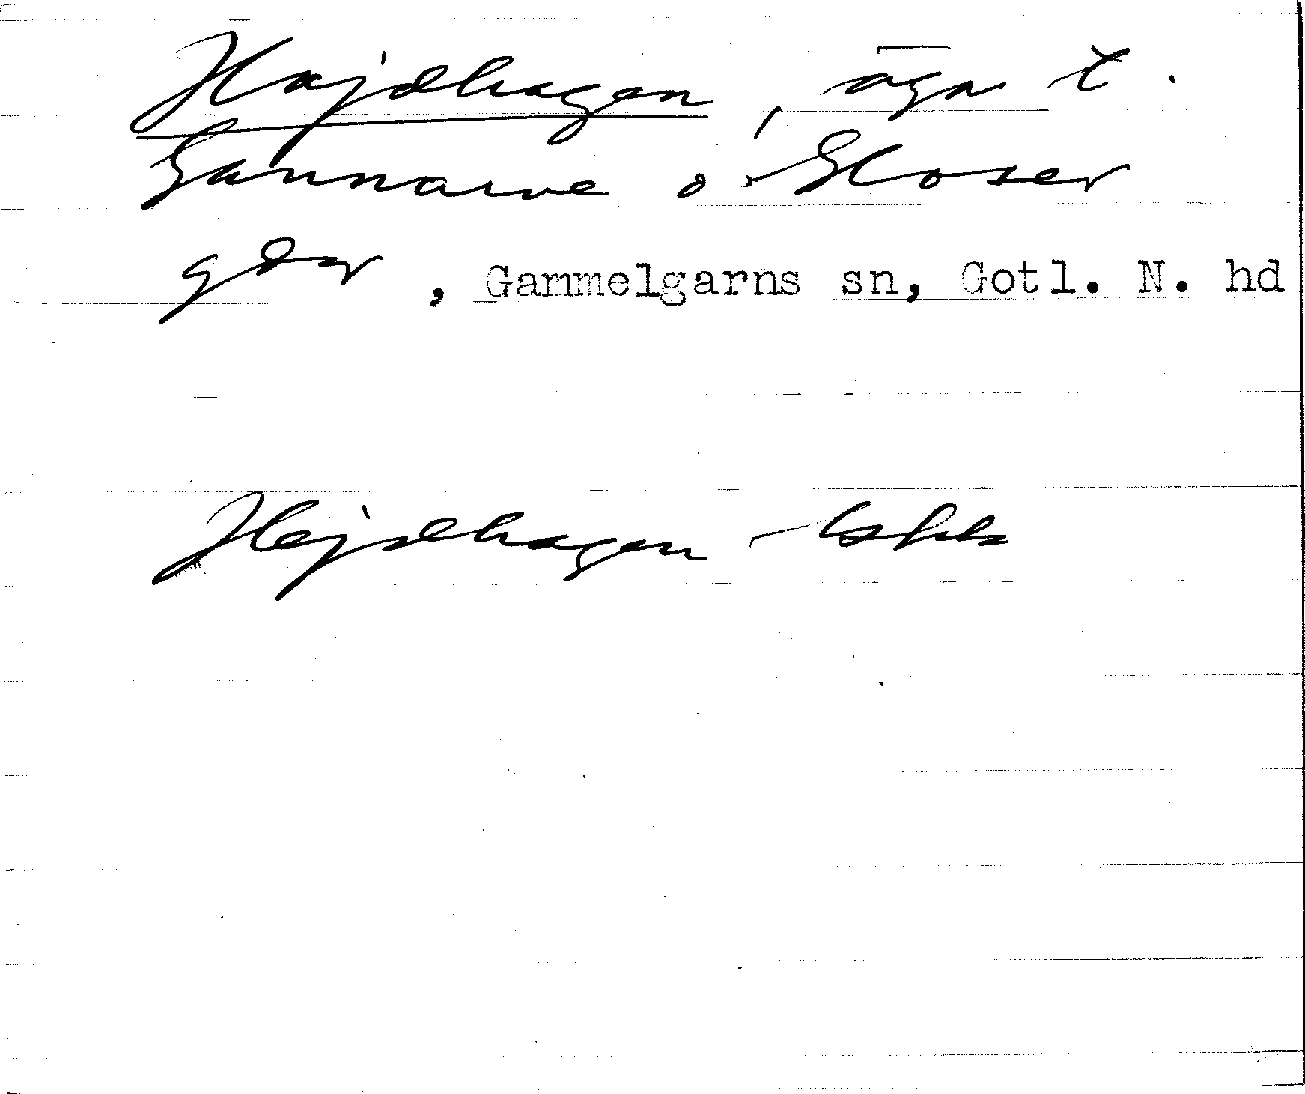 Hajdhagen, äga t.
Gannarve o. Gloser
gdar, Gammelgarns sn, Gotl. N. hd
Hejdhagen